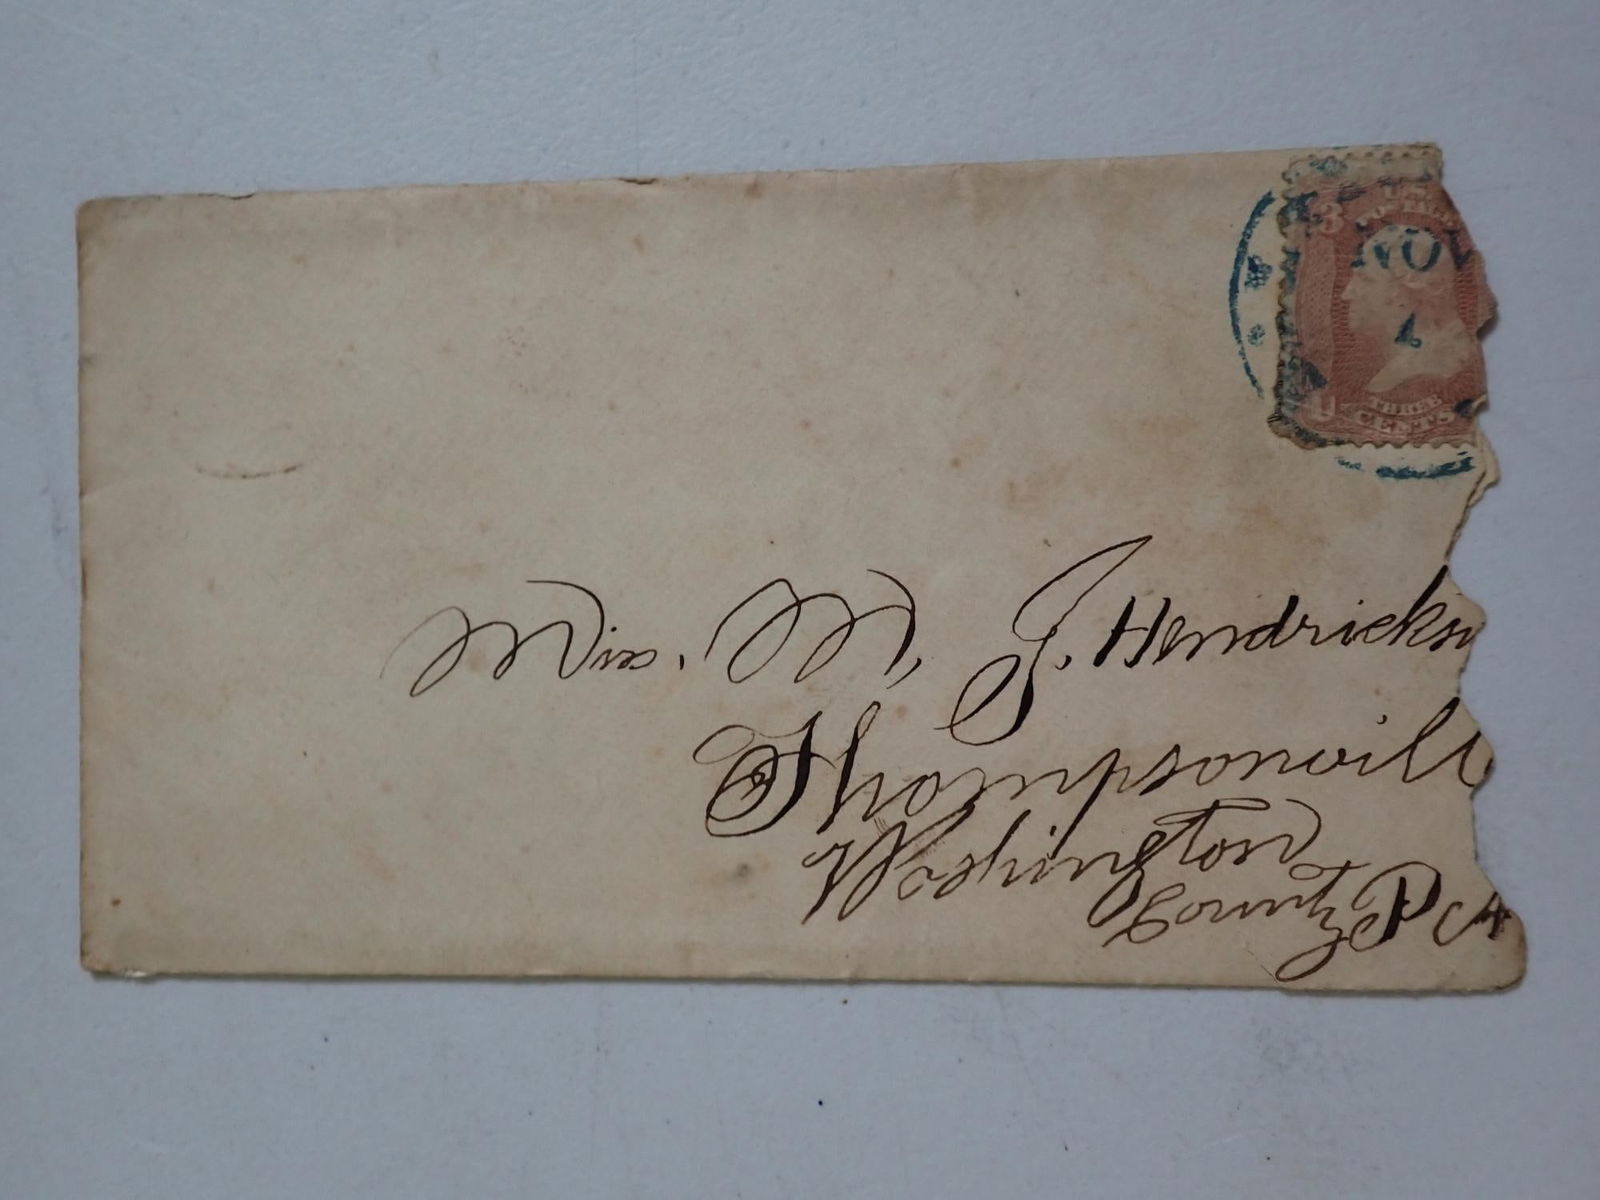 3
POSTAGE
NOV
1
U
THREE
CENTS
Miss. M, J. Hendrickso
Thompsonvill
Washington
County PA